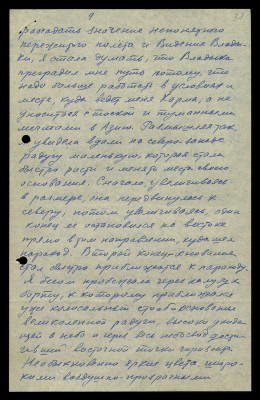 9
разгадать значение непонятного
перерыва полёта и Видения Влады-
ки, я стала думать, что Владыка
преградил мне путь потому, что
надо больше работать в условиях и
месте, куда ведет меня Карма, а не
уноситься с тоской и туманными
мечтами в Азию. Размышляя так,
увидела вдали на северо-западе
радугу маленькую, которая стала
быстро расти и менять место своего
основания. Сначала увеличиваясь
в размере, она передвинулась к
северу, потом увеличиваясь, один
конец ее остановился на востоке
прямо в том направлении, куда шел
пароход. Второй конец-основание
стал быстро приближаться к пароходу.
Я бегом пробежала через палубу к
борту, к которому приближался
уже колоссальный столб-основание
великолепной радуги, высоко уходя-
щей в небо и через весь небосвод дости-
гавшей восточной точки горизонта.
Необыкновенно яркие цвета, широ-
кими воздушно-прозрачными